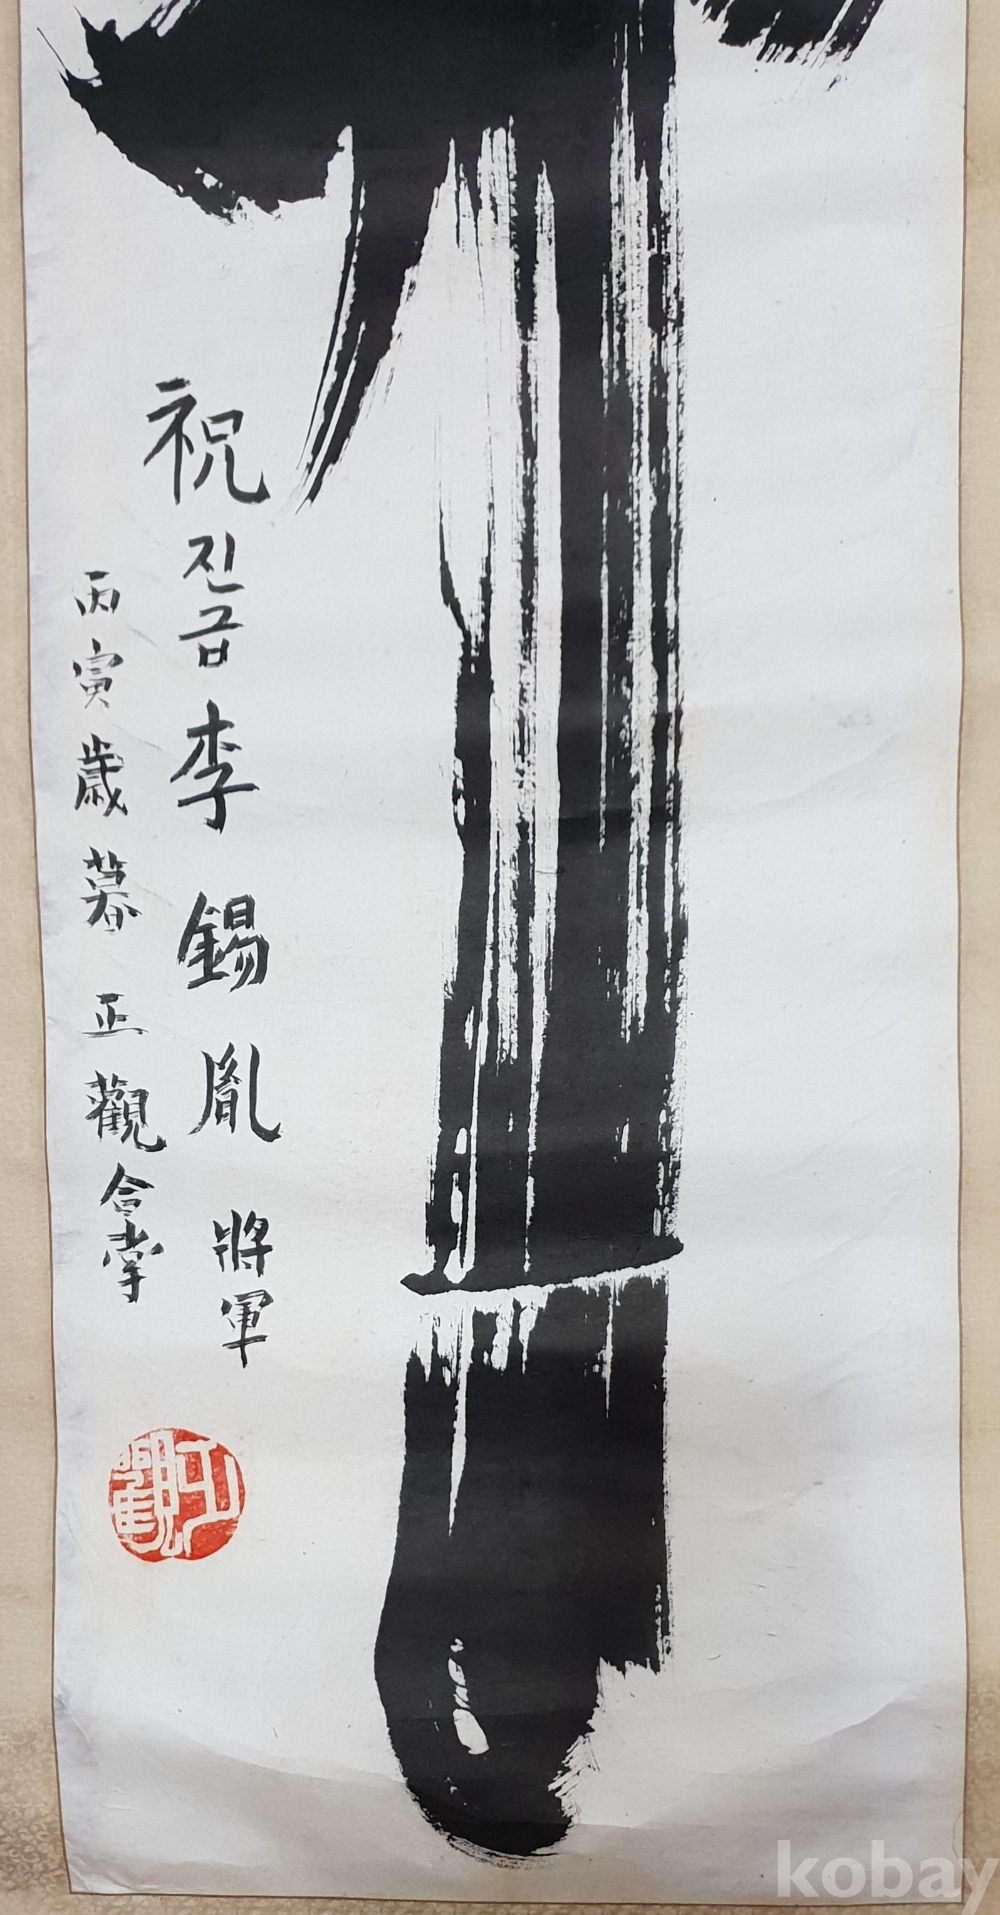 祝 진급 李錫胤 將軍
丙寅歲暮 正觀 合掌
正觀
kobay